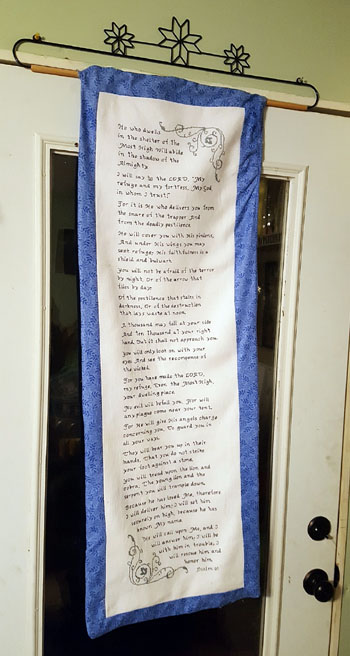 He who dwells
in the shelter of the
Most High Will abide
in the shadow of the
Almighty.
I will say to the LORD, "My
refuge and my fortress, My God
in whom I trust!"
For it is He who delivers you from
the snare of the trapper And
from the deadly pestilence.
He will cover you with His pinions,
And under His wings you may
seek refuge; His faithfulness is a
shield and bulwark.
You will not be afraid of the terror
by night, Or of the arrow that
flies by day;
Of the pestilence that stalks in
darkness, Or of the destruction
that lays waste at noon.
A thousand may fall at your side
And ten thousand at your right
hand, But it shall not approach you.
You will only look on with your
eyes And see the recompense of
the wicked.
For you have made the LORD,
my refuge, Even the Most High,
your dwelling place.
No evil will befall you, Nor will
any plague come near your tent.
For He will give His angels charge
concerning you, To guard you in
all your ways.
They will bear you up in their
hands, That you do not strike
your foot against a stone.
You will tread upon the lion and
cobra, The young lion and the
serpent you will trample down.
Because he has loved Me, therefore
I will deliver him; I will set him
securely on high, because he has
known My name.
He will call upon Me, and I
will answer him; I will be
with him in trouble; I
will rescue him and
honor him.
Psalm 91